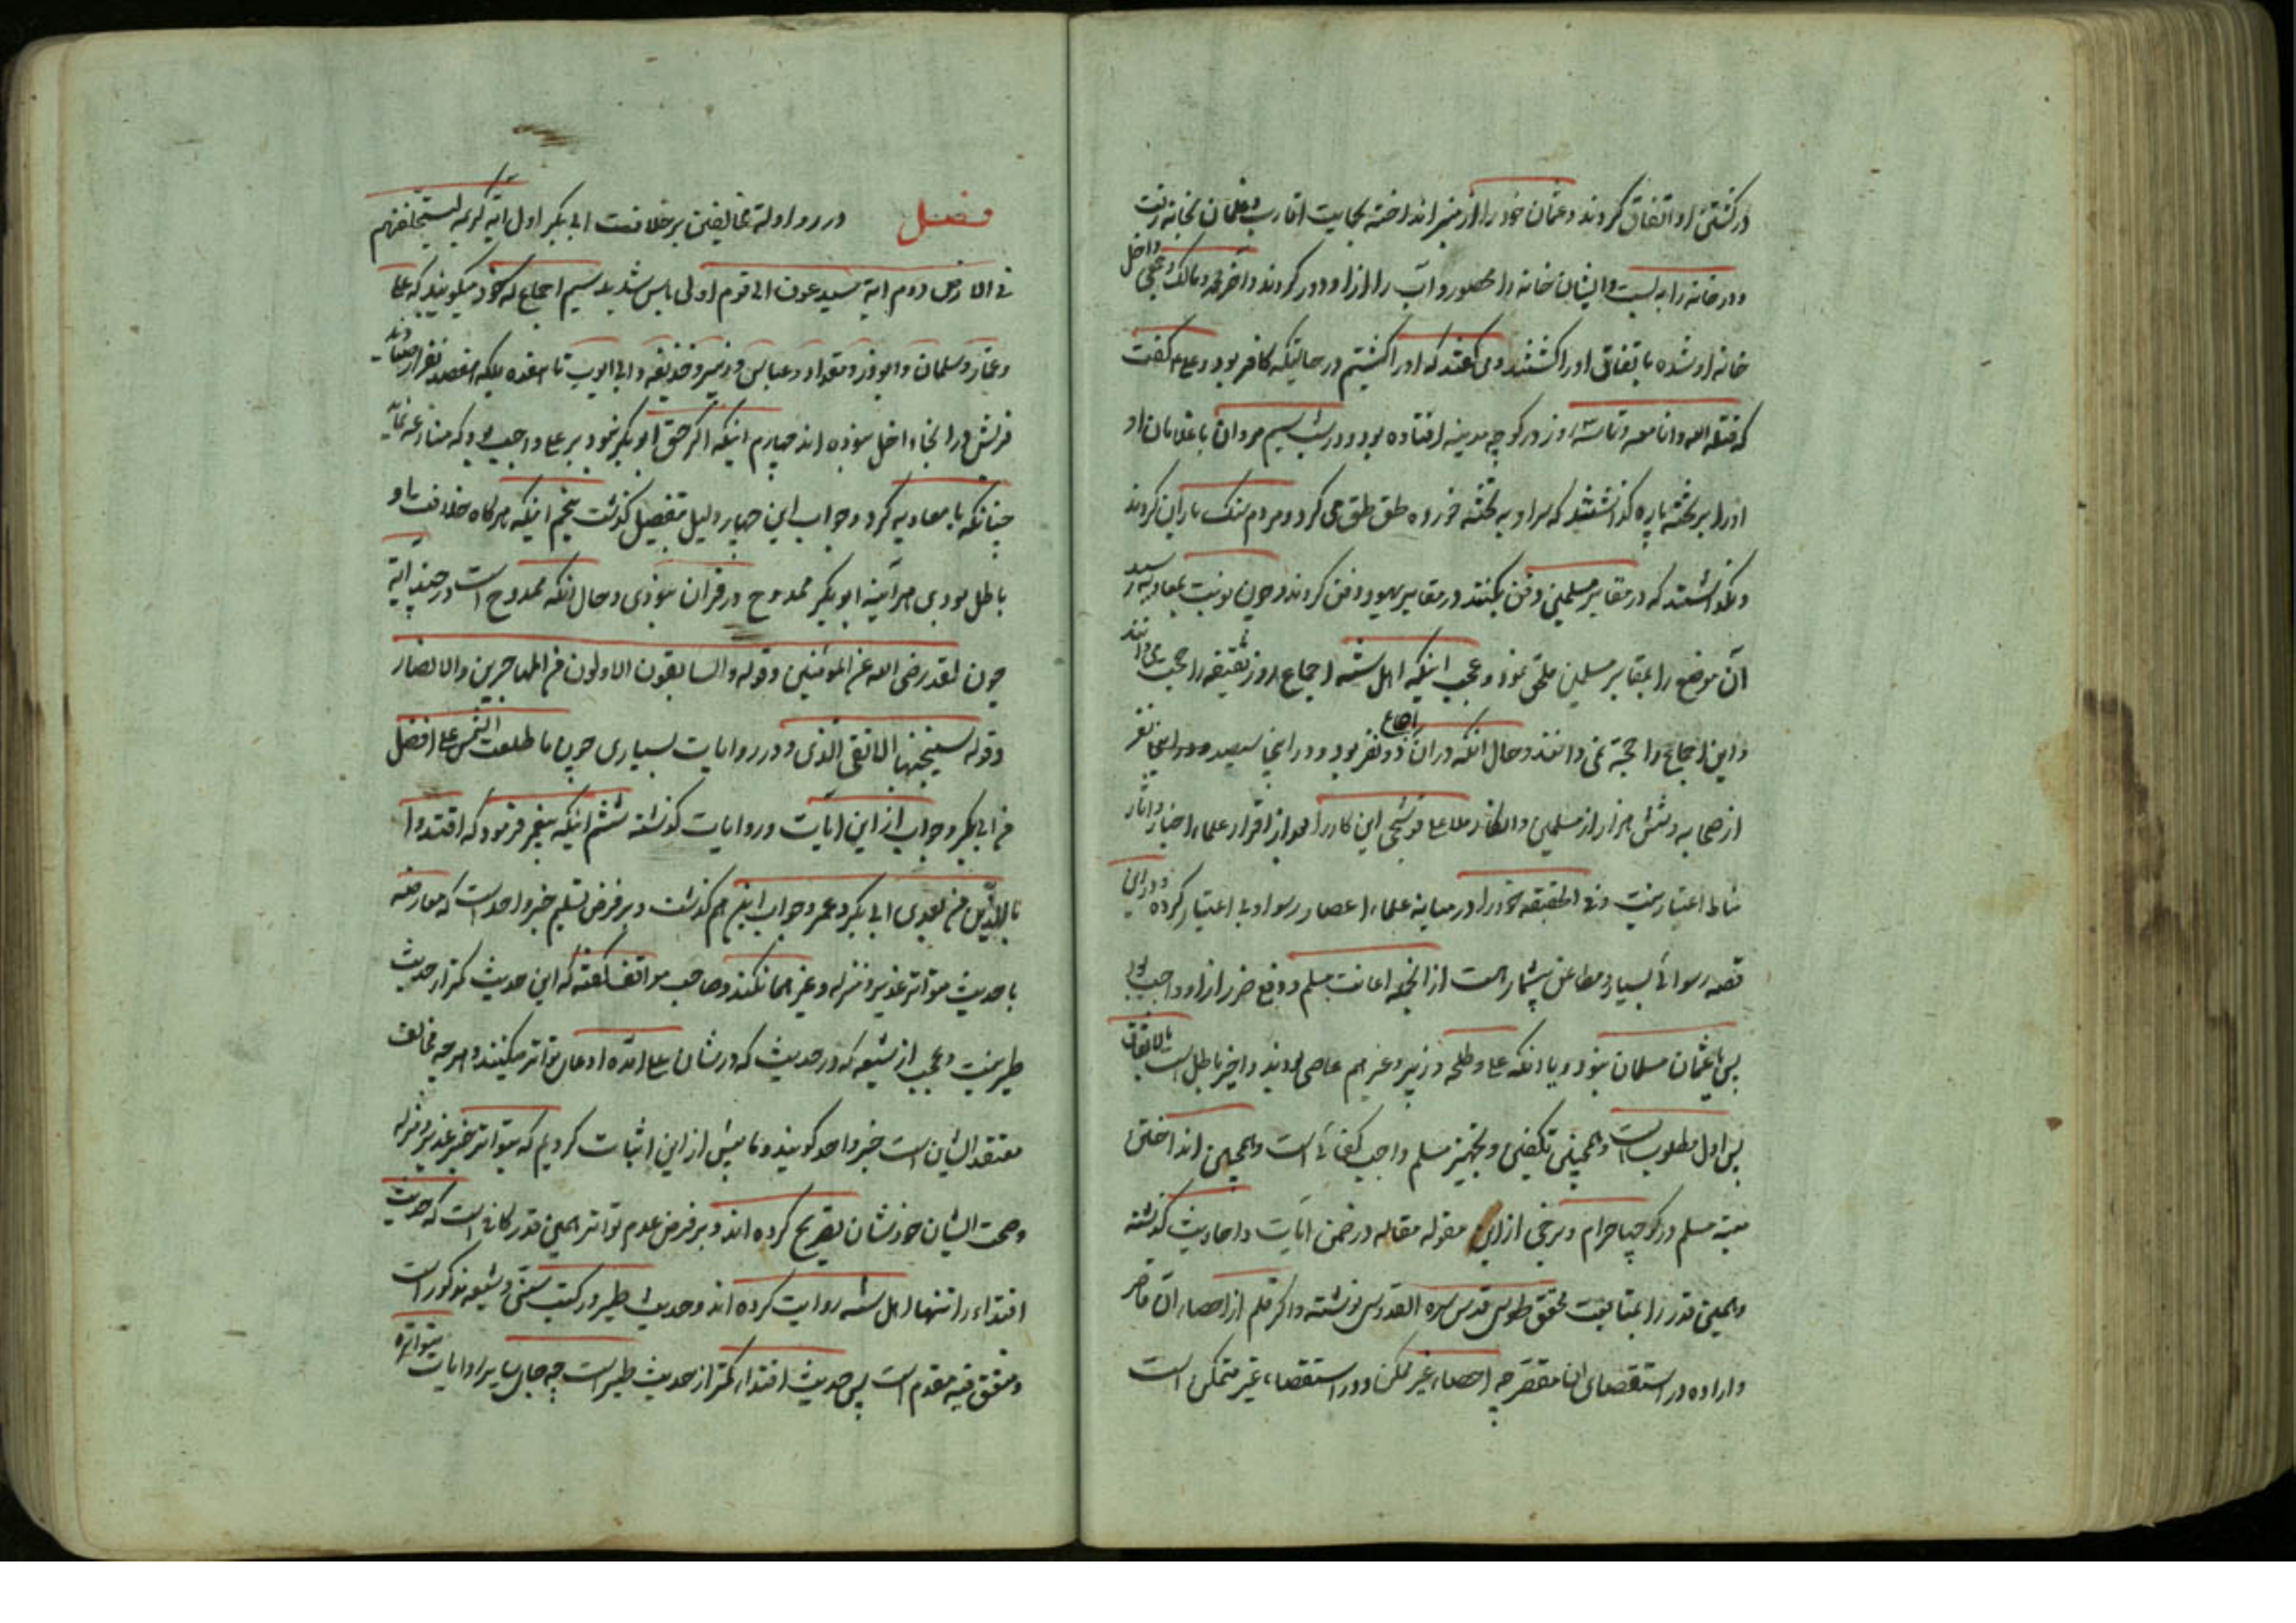 در کشتن او اتفاق کردند و عثمان خود را از منبر انداخته بحمایت اقارب و غلمان بخانه رفت
و در خانه را به بست و ایشان خانه را محصور و آب را از او دور کردند و آخر محمد و مالک و داخل
خانه او شده باتفاق او را کشتند و می گفتند که او را کشتیم در حالتیکه کافر بود و علی ع گفت
که قتله الله وانا معه و تا سه روز در کوچه مدینه افتاده بود و در شب سیم مروان با غلامان او
او را بر تخته پاره گذاشتند که سر او به تخته خورده طق طق می کرد و مردم سنگ باران کردند
و نگذاشتند که در مقابر مسلمین دفن بکنند در مقابر یهود دفن کردند و چون نوبت بمعاویه رسید
آن موضع را بمقابر مسلمین ملحق نمود و عجب اینکه اهل سنّه اجماع روز سقیفه را حجت می دانند
و این اجماع را حجة نمی دانند و حال آنکه در آن اجماع دو نفر بود و در این سیصد نفر
از صحابه و شش هزار از مسلمین و انکار ملا علی قوشجی این کار را بعد از اقرار علماء اخبار و آثار
از اعتبار نیست و فی الحقیقه خود را در میانه علماء اعصار رسوا و بی اعتبار کرده و در این
قصه رسوائی بسیار و مطاعن بیشمار است از آنجمله اعانت مسلم و دفع ضرر از او واجب بود
پس یا عثمان مسلمان نبود و یا آنکه علی و طلحه و زبیر و غیرهم عاصی بودند و اخیر باطل است بالاتفاق
پس اول مطلوب است و همچنین تکفین و تجهیز مسلم واجب کفائی است و همچنین انداختن
میته مسلم در کوچها حرام و برخی از این مقوله مقاله در ضمن آیات و احادیث گذشته
و همین قدر را بمتابعت محقق طوسی قدس سره القدوسی نوشته و اگر قلم از احصاء آن قاصر
و اراده در استقصای آن مقصر چه احصاء غیر ممکن و در استقصاء غیر متمکن است
فصل در رد ادله مخالفین بر خلافت ابی بکر اول آیه کریمه لیستخلفنهم
فی الارض دوم آیه ستدعون الی قوم اولی باس شدید سیم اجماع که خود میگویند که علی
و عمار و سلمان و ابوذر و مقداد و عباس و زبیر و حذیفه و ابی ایوب تا هفده بلکه هفصد نفر
قریش در آنجا داخل نبوده اند چهارم اینکه اگر حق ابو بکر نبود بر علی واجب بود که منازعه نماید
چنانکه با معاویه کرد و جواب این چهار دلیل بتفصیل گذشت پنجم اینکه هرگاه خلافت او
باطل بودی هر آینه ابو بکر ممدوح در قرآن نبودی و حال آنکه ممدوح است در چند آیه
چون لقد رضی الله عن المؤمنین و قوله والسابقون الاولون من المهاجرین والانصار
و قوله سیجنبها الاتقی الذی و در روایات بسیاری چون ما طلعت الشمس علی افضل
من ابی بکر و جواب از این آیات و روایات گذشته ششم اینکه پیغمبر فرمود که اقتدوا
باللذین من بعدی ابی بکر و عمر و جواب این هم گذشت و بر فرض تسلیم خبر واحد است که معارضه
با حدیث متواتر غدیر و منزله و غیرهما نکند و صاحب مواقف گفته که این حدیث کمتر از حدیث
طیر نیست و عجب از شیعه که در حدیث که در شان علی آمده ادعای تواتر میکنند و هر چه مخالف
معتقد ایشان است خبر واحد گویند و ما پیش از این اثبات کردیم که بتواتر خبر غدیر و منزله
و صحت ایشان خودشان تصریح کرده اند و بر فرض عدم تواتر همین قدر کافی است که حدیث
اقتداء را تنها اهل سنّه روایت کرده اند و حدیث طیر در کتب سنّی و شیعه مذکور است
و متفق فیه مقدم است پس حدیث اقتداء کمتر از حدیث طیر است چه جای سایر روایات متواتره